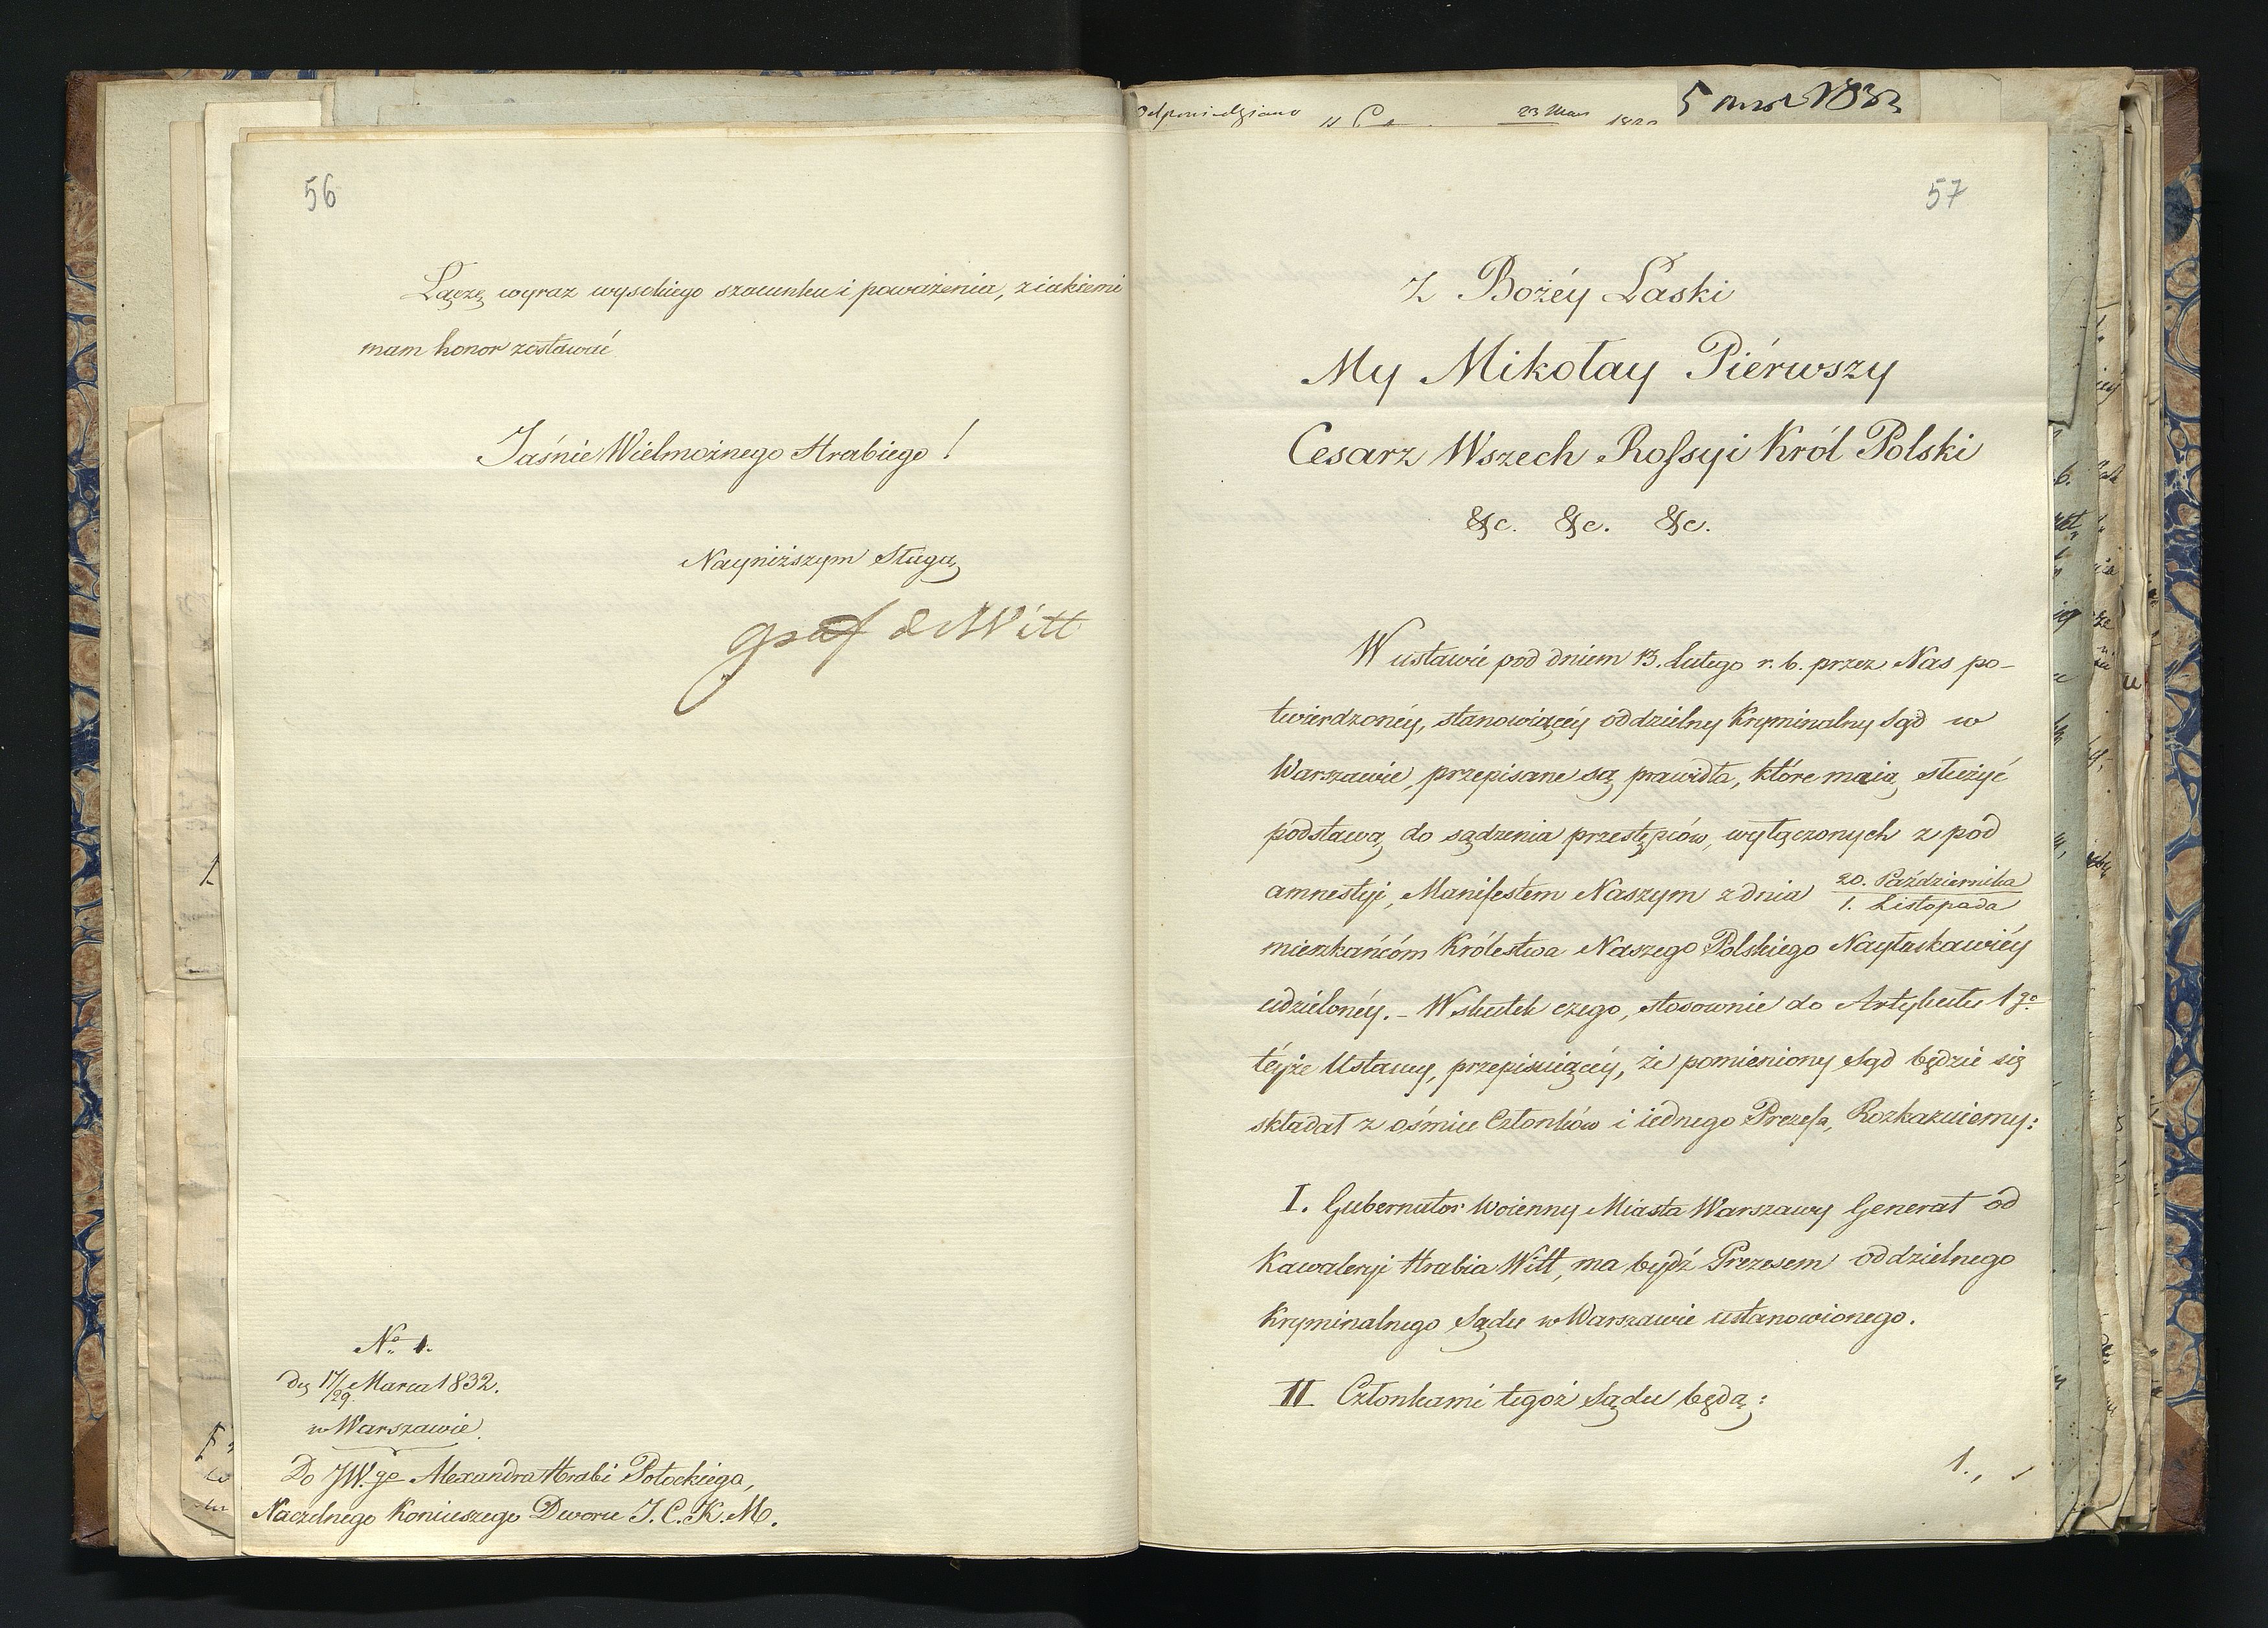 56
Łączę wyraz wysokiego szacunku i poważenia, z iakiemi
mam honor zostawać
Jaśnie Wielmożnego Hrabiego!
Nayniższym Sługą
graf de Witt
No. 1.
dę 17/29 Marca 1832.
w Warszawie.
Do JW.go Alexandra Hrabi Potockiego,
Naczelnego Koniuszego Dworu J. C. K. M.
Odpowiedziano
23 Mar
57
Z Bożéy Łaski
My Mikołay Piérwszy
Cesarz Wszech Rossyi Król Polski
&c. &c. &c.
W ustawie pod dniem 13. Lutego r. b. przez Nas po-
twierdzonéy, stanowiącéy oddzielny Kryminalny Sąd w
Warszawie, przepisane są prawidła, które maią służyć
podstawą do sądzenia przestępców, wyłączonych z pod
amnestyi, Manifestem Naszym z dnia 20. Października / 1. Listopada
mieszkańcóm Królestwa Naszego Polskiego Nayłaskawiéy
udzielonéy. – W skutek czego, stosownie do Artykułu 1go
téyże Ustawy, przepisuiącéy, że pomieniony Sąd będzie się
składał z ośmiu Członków i iednego Prezesa, Rozkazuiemy:
I. Gubernator Woienny Miasta Warszawy Generał od
Kawaleryi Hrabia Witt, ma bydź Prezesem oddzielnego
Kryminalnego Sądu w Warszawie ustanowionego.
II Członkami tegoż Sądu będą:
1.,